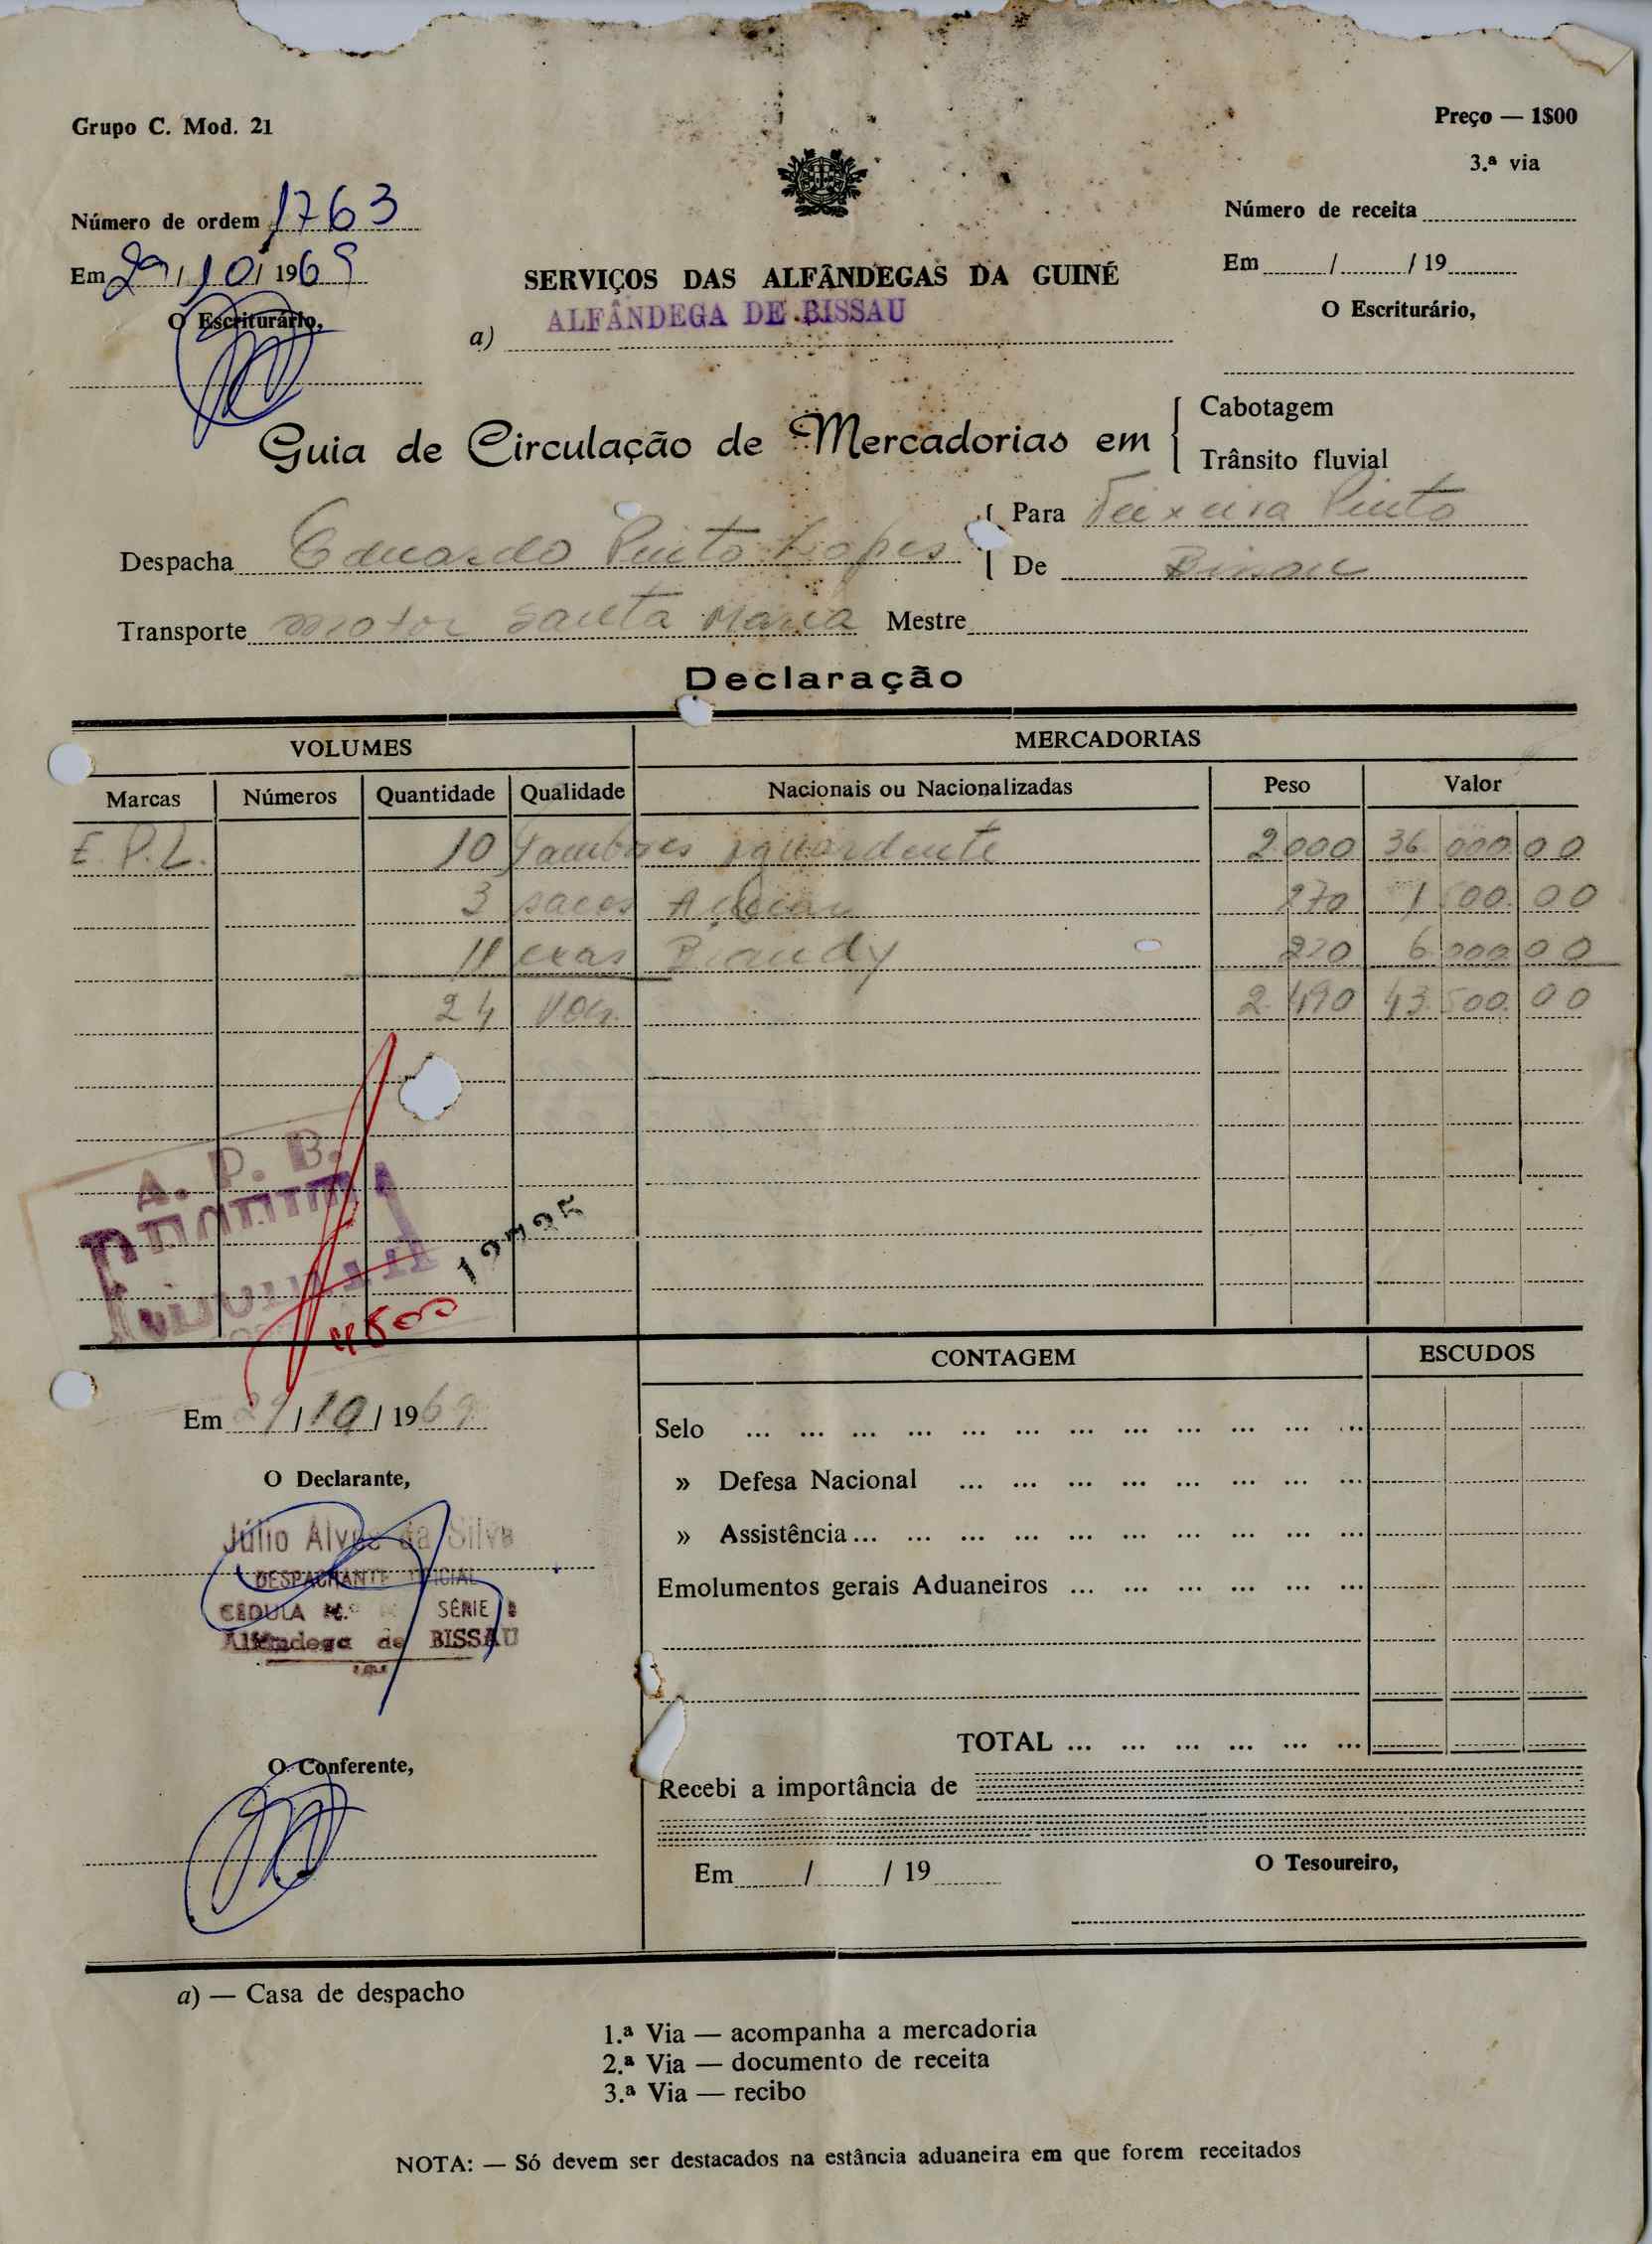 Grupo C. Mod. 21
Preço — 1$00
3.ª via
Número de ordem 1763
Número de receita
Em 29/10/1969
Em / / 19
O Escriturário,
O Escriturário,
SERVIÇOS DAS ALFÂNDEGAS DA GUINÉ
a) ALFÂNDEGA DE BISSAU
Guia de Circulação de Mercadorias em
Cabotagem
Trânsito fluvial
Despacha Eduardo Pinto Lopes
Para Teixeira Pinto
De Bissau
Transporte motor Santa Maria Mestre
Declaração
VOLUMES MERCADORIAS
Marcas Números Quantidade Qualidade Nacionais ou Nacionalizadas Peso Valor
E. P. L. 10 Tambores aguardente 2.000 36.000.00
3 sacos Açúcar 270 1.500.00
11 cxas Brandy 220 6.000.00
24 Vols. 2.490 43.500.00
A. P. B.
4500
CONTAGEM ESCUDOS
Em 29/10/1969
Selo ... ... ... ... ... ... ... ... ... ... ... ...
O Declarante,
» Defesa Nacional ... ... ... ... ... ... ... ...
Júlio Alves da Silva
» Assistência ... ... ... ... ... ... ... ... ... ...
DESPACHANTE OFICIAL
Emolumentos gerais Aduaneiros ... ... ... ... ... ...
CÉDULA N.º SÉRIE
Alfândega de BISSAU
TOTAL ... ... ... ... ... ...
O Conferente,
Recebi a importância de
Em / / 19
O Tesoureiro,
a) — Casa de despacho
1.ª Via — acompanha a mercadoria
2.ª Via — documento de receita
3.ª Via — recibo
NOTA: — Só devem ser destacados na estância aduaneira em que forem receitados